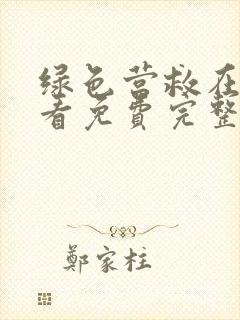 绿色营救在
看免費完整
鄭家柱